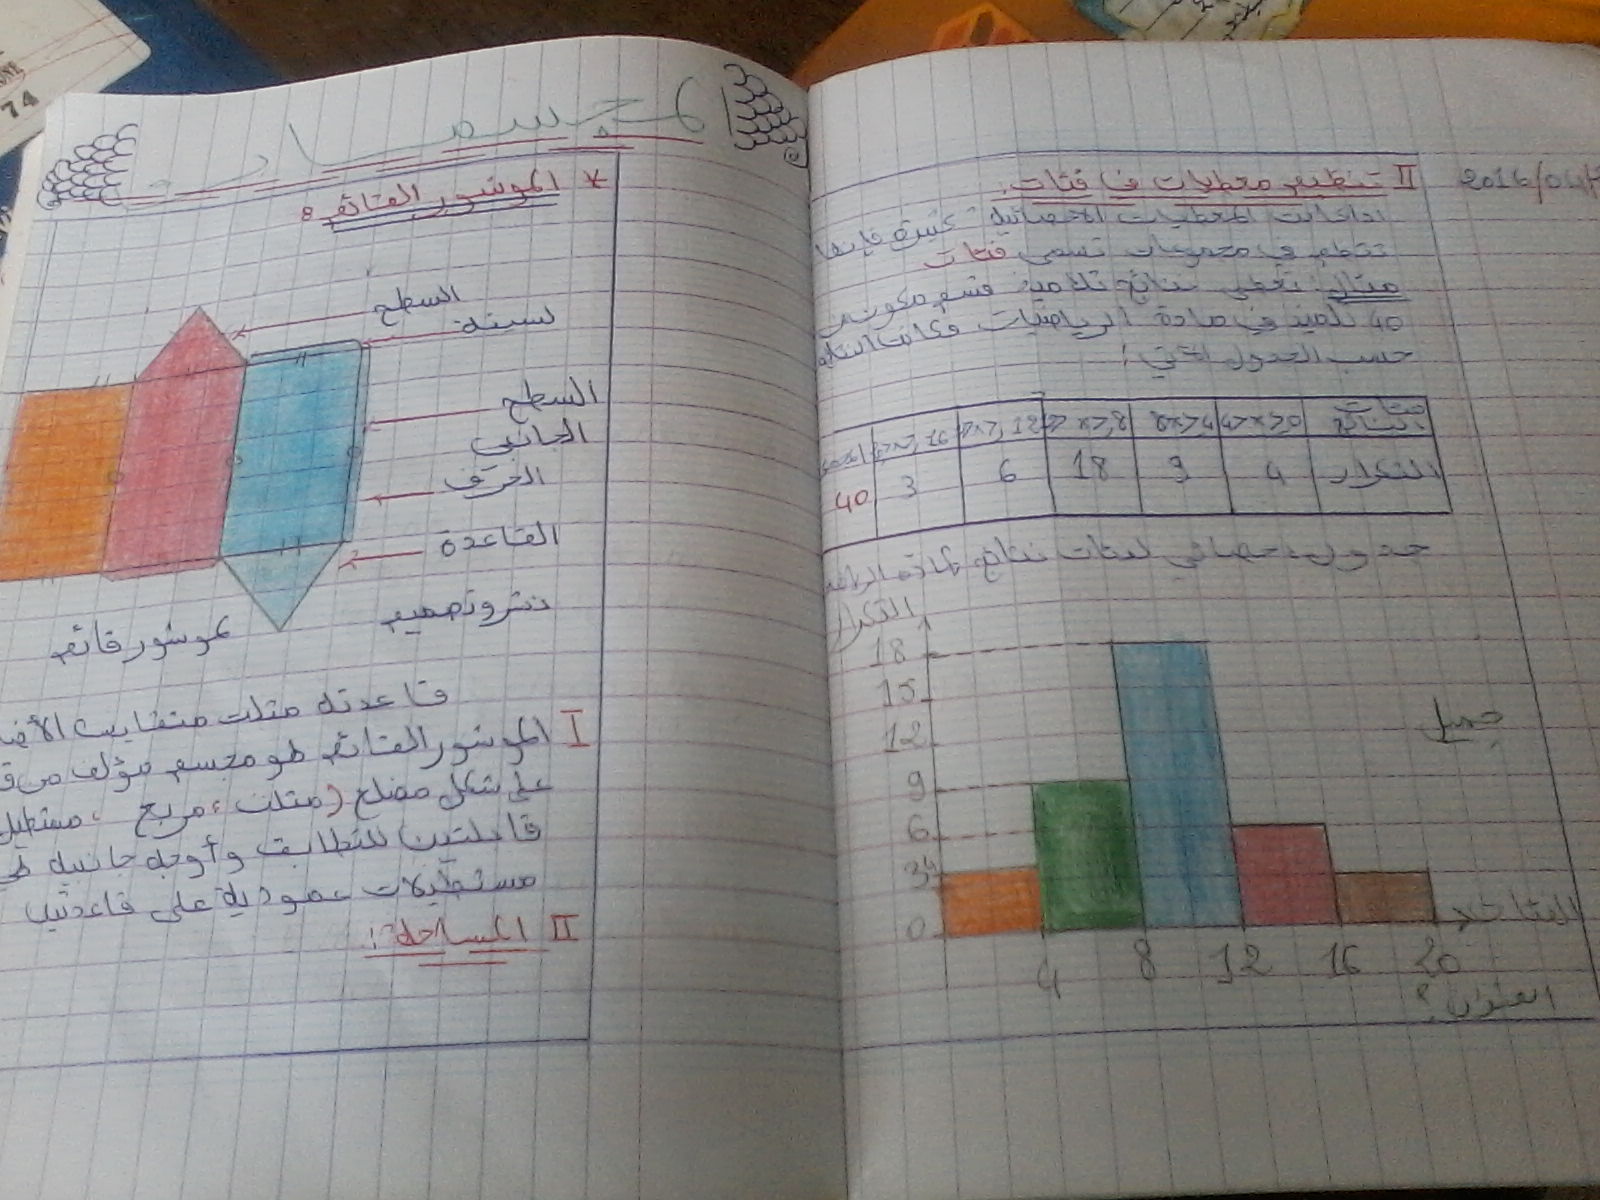 مجسمات
* الموشور القائم:
السطح
لسنة
السطح
الجانبي
الحرف
القاعدة
نشر وتصميم
لموشور قائم
قاعدته مثلث متقايس الأض
I الموشور القائم هو مجسم مؤلف من ق
على شكل مضلع (مثلث، مربع، مستطيل
قابلتين للتطابق وأوجه جانبية
مستطيلات عمودية على قاعدتين
II المساحة:
2016/04/
II تنظيم معطيات في فئات:
اذا كانت المعطيات الاحصائية كثيرة فإنها
تنظم في مجموعات تسمى فئات
مثال: نعطي نتائج تلاميذ قسم مكون من
40 تلميذ في مادة الرياضيات وكانت النتا
حسب الجدول الآتي:
فئات النتائج 4>x≥0 8>x≥4 x≥8 x≥12 x≥16
التكرار 4 9 18 6 3 40
جدول احصائي لفئات نتائج مادة الرياض
التكرار
18
15
12
9
6
4
3
0
4 8 12 16 20
الفئات
جميل
العنوان؟
74